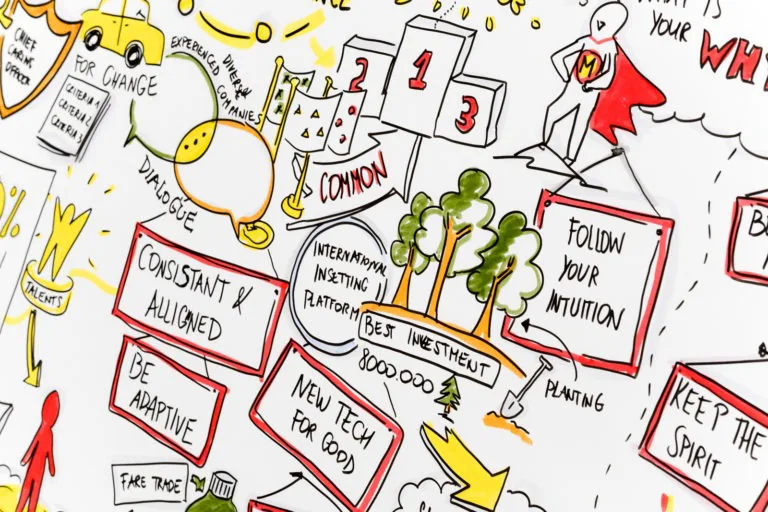 CHIEF
CARING
OFFICER
FOR CHANGE
CRITERIA 1
CRITERIA 2
CRITERIA 3
EXPERIENCED DIVERSE
COMPANIES
DIALOGUE
2
1
3
COMMON
M
YOUR WHY
%
TALENTS
CONSISTANT &
ALLIGNED
BE
ADAPTIVE
INTERNATIONAL
INSETTING
PLATFORM
BEST INVESTMENT
8000.000
PLANTING
FOLLOW
YOUR
INTUITION
NEW TECH
FOR GOOD
KEEP THE
SPIRIT
FARE TRADE